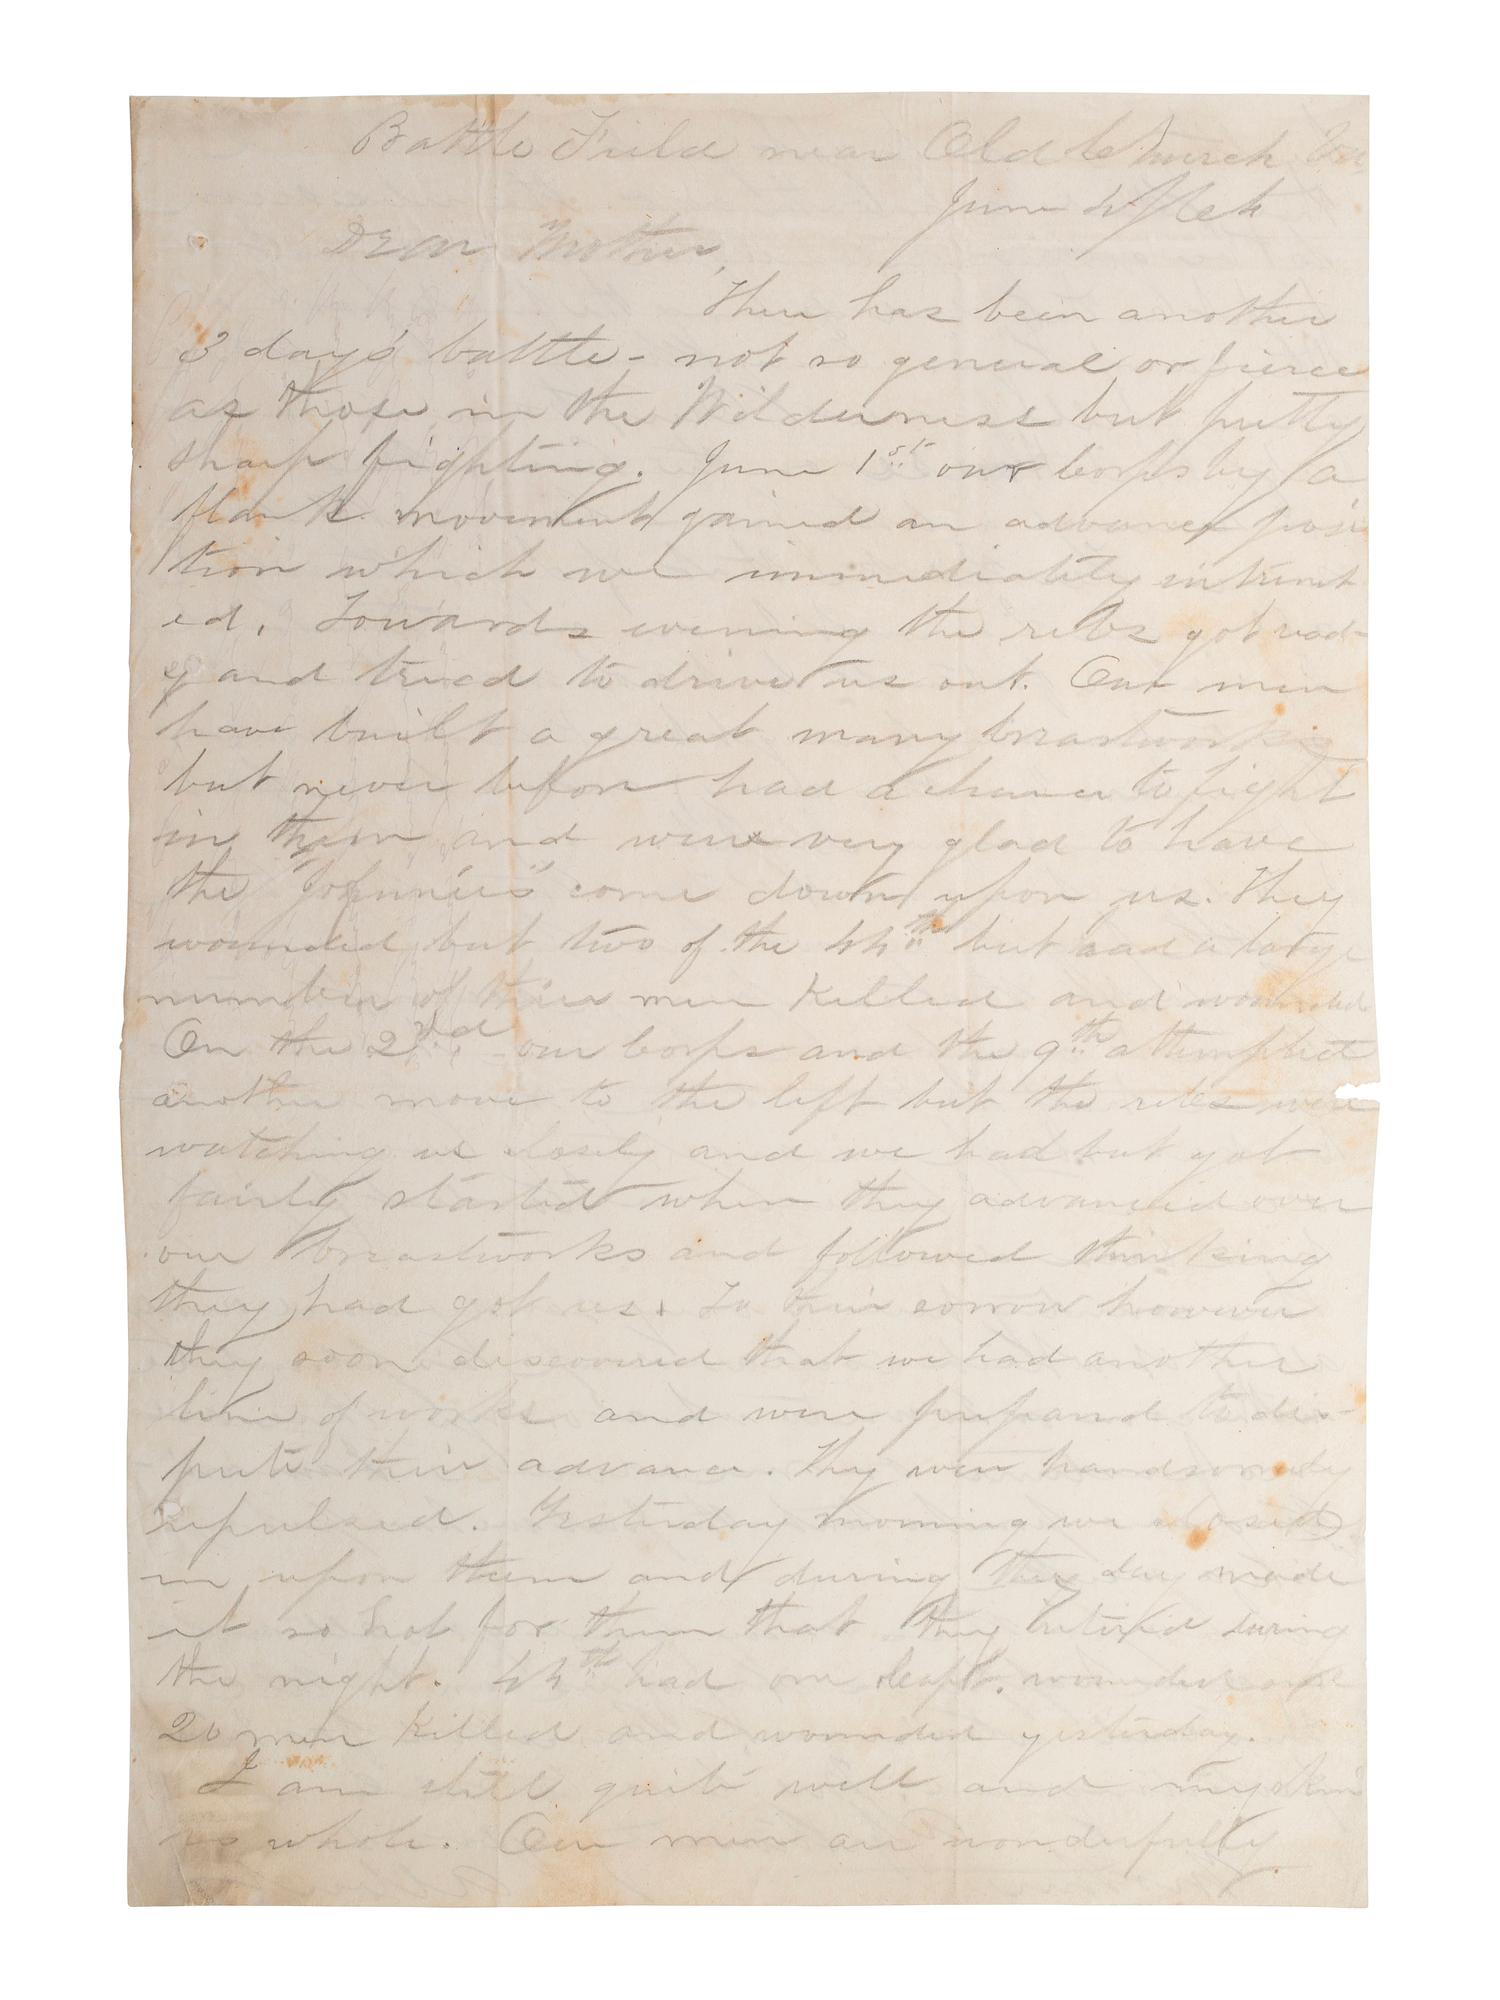 Battle Field near Old Church Va
June 4th/64
Dear Mother,
There has been another
3 day's battle - not so general or fierce
as those in the Wilderness but pretty
sharp fighting. June 1st our Corps by a
flank movement gained an advance posi
tion which we immediately intrench
ed. Towards evening the rebs got read-
y and tried to drive us out. Our men
have built a great many breastworks
but never before had a chance to fight
in them and were very glad to have
the "Johnnies" come down upon us. They
wounded but two of the 44th but had a large
number of their men killed and wounded
On the 2nd our Corps and the 9th attempted
another move to the left but the rebs were
watching us closely and we had but got
fairly started when they advanced over
our breastworks and followed thinking
they had got us. To their sorrow however
they soon discovered that we had another
line of works and were prepared to dis-
pute their advance. They were handsomely
repulsed. Yesterday morning we closed
in upon them and during the day made
it so hot for them that they retired during
the night. 44th had one Capt. wounded and
20 men killed and wounded yesterday.
I am still quite well and my skin
is whole. Our men are wonderfully